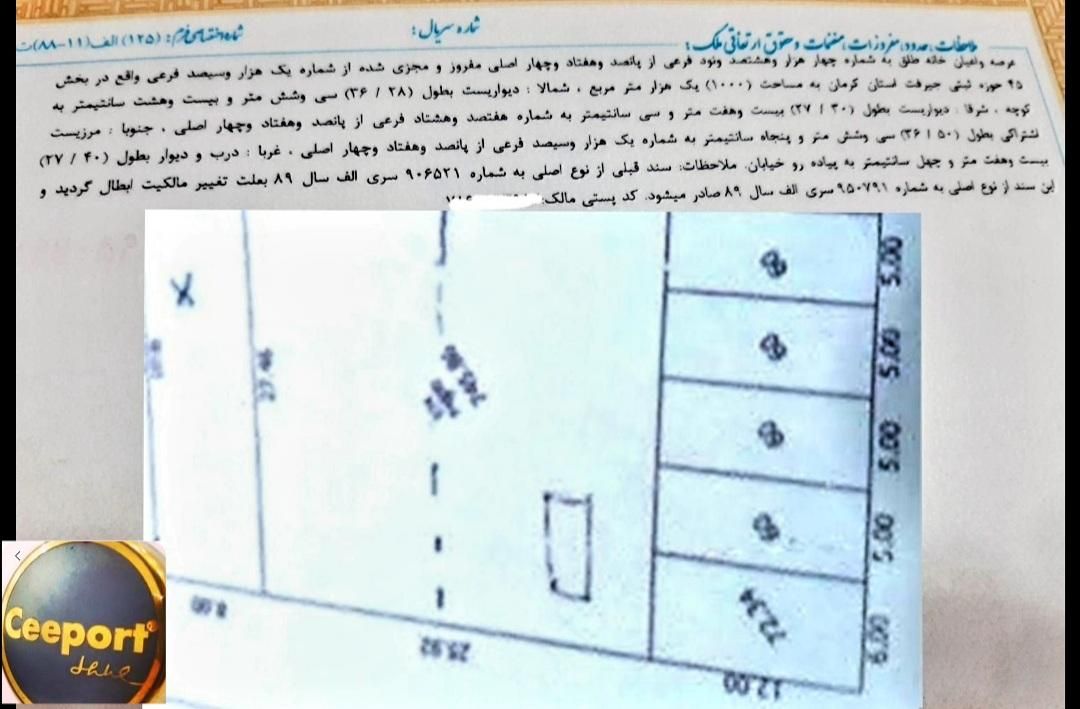 ملاحظات، حدود، مفروزات، منضمات و حقوق ارتفاقی ملک:
شماره سریال:
شماره اختصاصی فرم: (۱۲۵) الف (۱۱-۸۸) ث
عرصه واعیان خانه طلق به شماره چهار هزار وهشتصد ونود فرعی از پانصد وهفتاد وچهار اصلی مفروز و مجزی شده از شماره یک هزار وسیصد فرعی واقع در بخش
۴۵ حوزه ثبتی جیرفت استان کرمان به مساحت (۱۰۰۰) یک هزار متر مربع ، شمالا : دیواریست بطول (۲۸ / ۳۶) سی وشش متر و بیست وهشت سانتیمتر به
کوچه ، شرقا : دیواریست بطول (۳۰ / ۲۷) بیست وهفت متر و سی سانتیمتر به شماره هفتصد وهشتاد فرعی از پانصد وهفتاد وچهار اصلی ، جنوبا : مرزیست
اشتراکی بطول (۵۰ / ۳۶) سی وشش متر و پنجاه سانتیمتر به شماره یک هزار وسیصد فرعی از پانصد وهفتاد وچهار اصلی ، غربا : درب و دیوار بطول (۴۰ / ۲۷)
بیست وهفت متر و چهل سانتیمتر به پیاده رو خیابان. ملاحظات: سند قبلی از نوع اصلی به شماره ۹۰۶۵۲۱ سری الف سال ۸۹ بعلت تغییر مالکیت ابطال گردید و
این سند از نوع اصلی به شماره ۹۵۰۷۹۱ سری الف سال ۸۹ صادر میشود. کد پستی مالک:
5.00
5.00
5.00
5.00
6.00
60
60
60
60
72.34
12.00
27.46
25.92
8.00
Ceeport